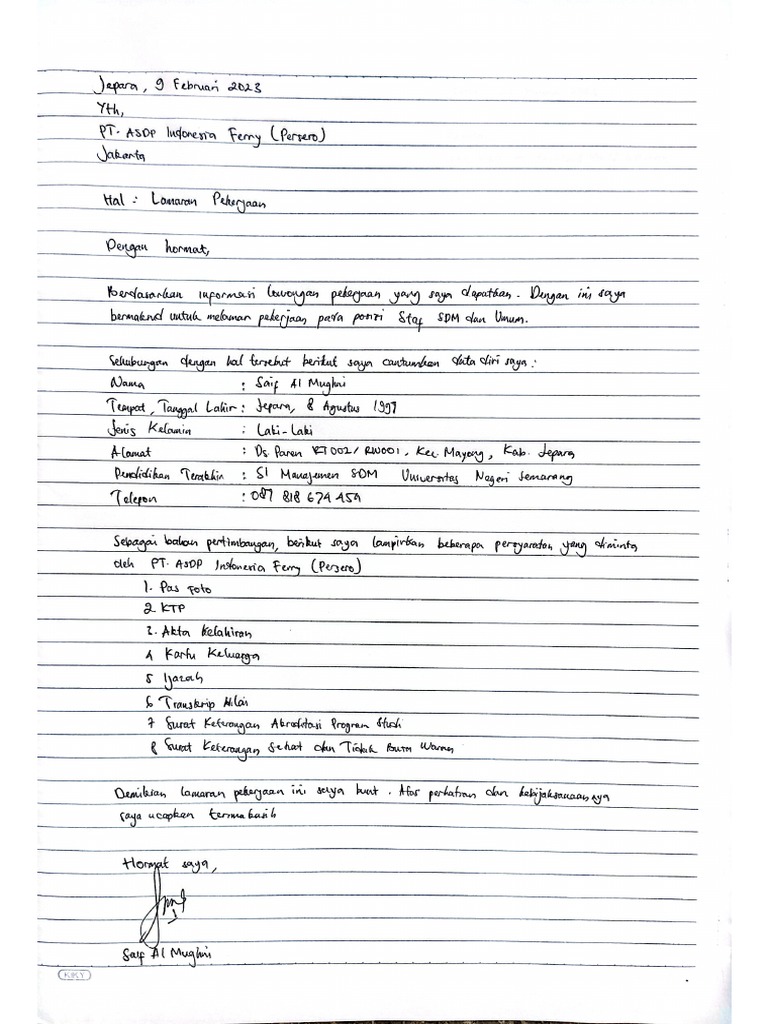 Jepara, 9 Februari 2023
Yth,
PT. ASDP Indonesia Ferry (Persero)
Jakarta
Hal : Lamaran Pekerjaan
Dengan hormat,
Berdasarkan informasi lowongan pekerjaan yang saya dapatkan. Dengan ini saya
bermaksud untuk melamar pekerjaan pada posisi Staf SDM dan Umum.
Sehubungan dengan hal tersebut berikut saya cantumkan data diri saya :
Nama : Saif Al Mughni
Tempat, Tanggal Lahir : Jepara, 8 Agustus 1997
Jenis Kelamin : Laki-Laki
Alamat : Ds. Paren RT002/RW001, Kec. Mayong, Kab. Jepara
Pendidikan Terakhir : S1 Manajemen SDM Universitas Negeri Semarang
Telepon : 087 818 674 459
Sebagai bahan pertimbangan, berikut saya lampirkan beberapa persyaratan yang diminta
oleh PT. ASDP Indonesia Ferry (Persero)
1. Pas Foto
2 KTP
3. Akta Kelahiran
4 Kartu Keluarga
5 Ijazah
6 Transkrip Nilai
7 Surat Keterangan Akreditasi Program Studi
8 Surat Keterangan Sehat dan Tidak Buta Warna
Demikian lamaran pekerjaan ini saya buat. Atas perhatian dan kebijaksanaannya
saya ucapkan terimakasih
Hormat saya,
Saif Al Mughni
KKY